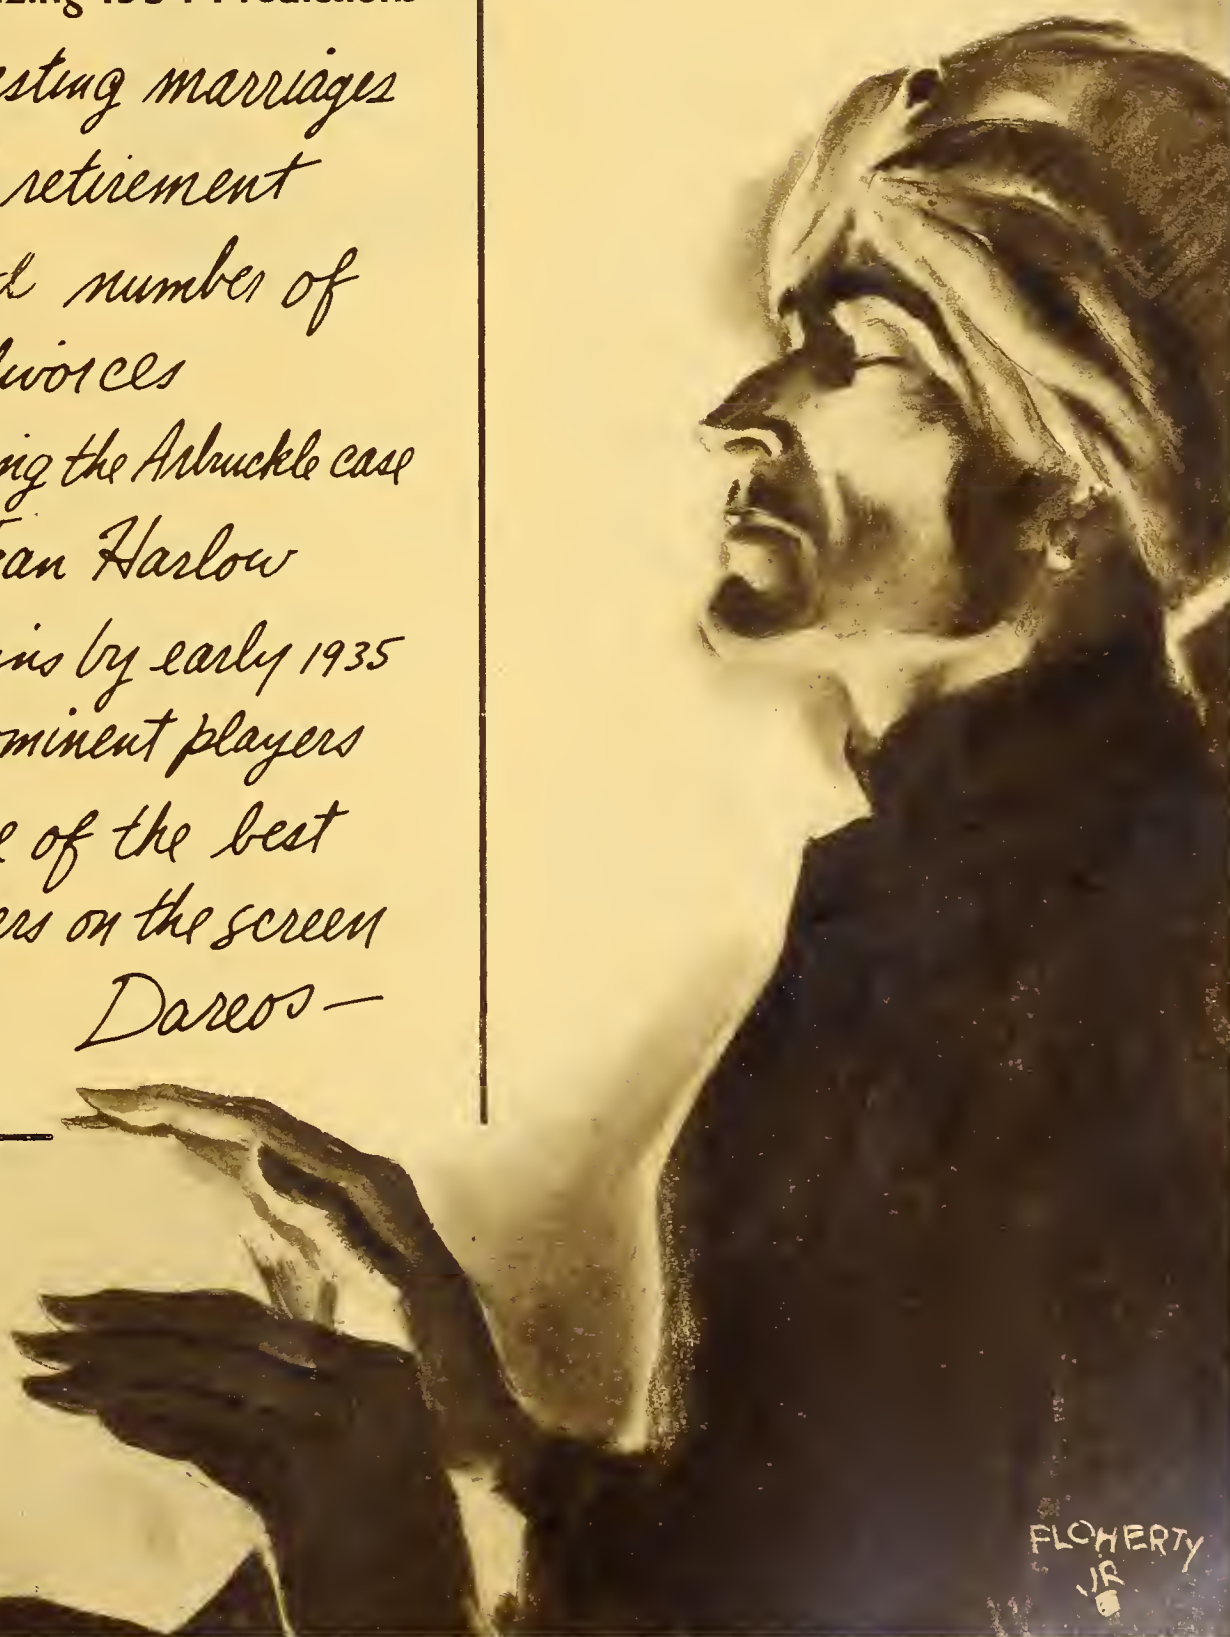 1934 Predictions
esting marriages
retirement
number of
ivorces
ng the Arbuckle case
ean Harlow
ins by early 1935
ominent players
of the best
ers on the screen
Dareos—
FLOHERTY
JR